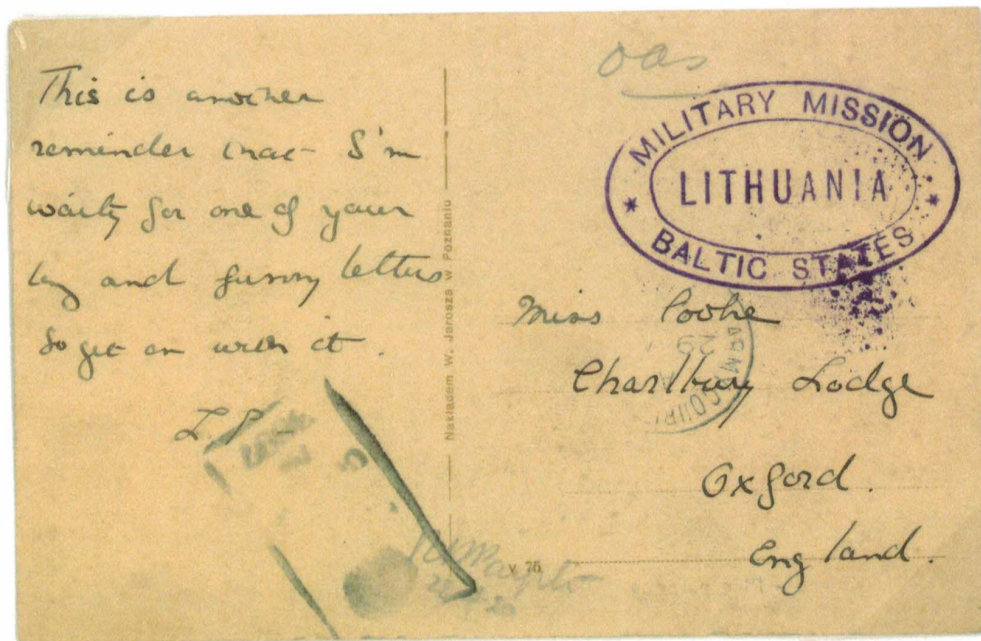 This is another
reminder that I'm
waity for one of your
long and funny letters
So get on with it.
L.P.
Nakładem W. Jarosza w Poznaniu
V 75
oas
MILITARY MISSION
* LITHUANIA *
BALTIC STATES
ARMY COURI
29
Miss Cooke
Charlbury Lodge
Oxford.
England.